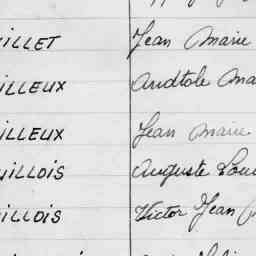 ILLET Jean Marie
ILLEUX Anatole Ma
ILLEUX Jean Marie
UILLOIS Auguste Lou
ILLOIS Victor Jean